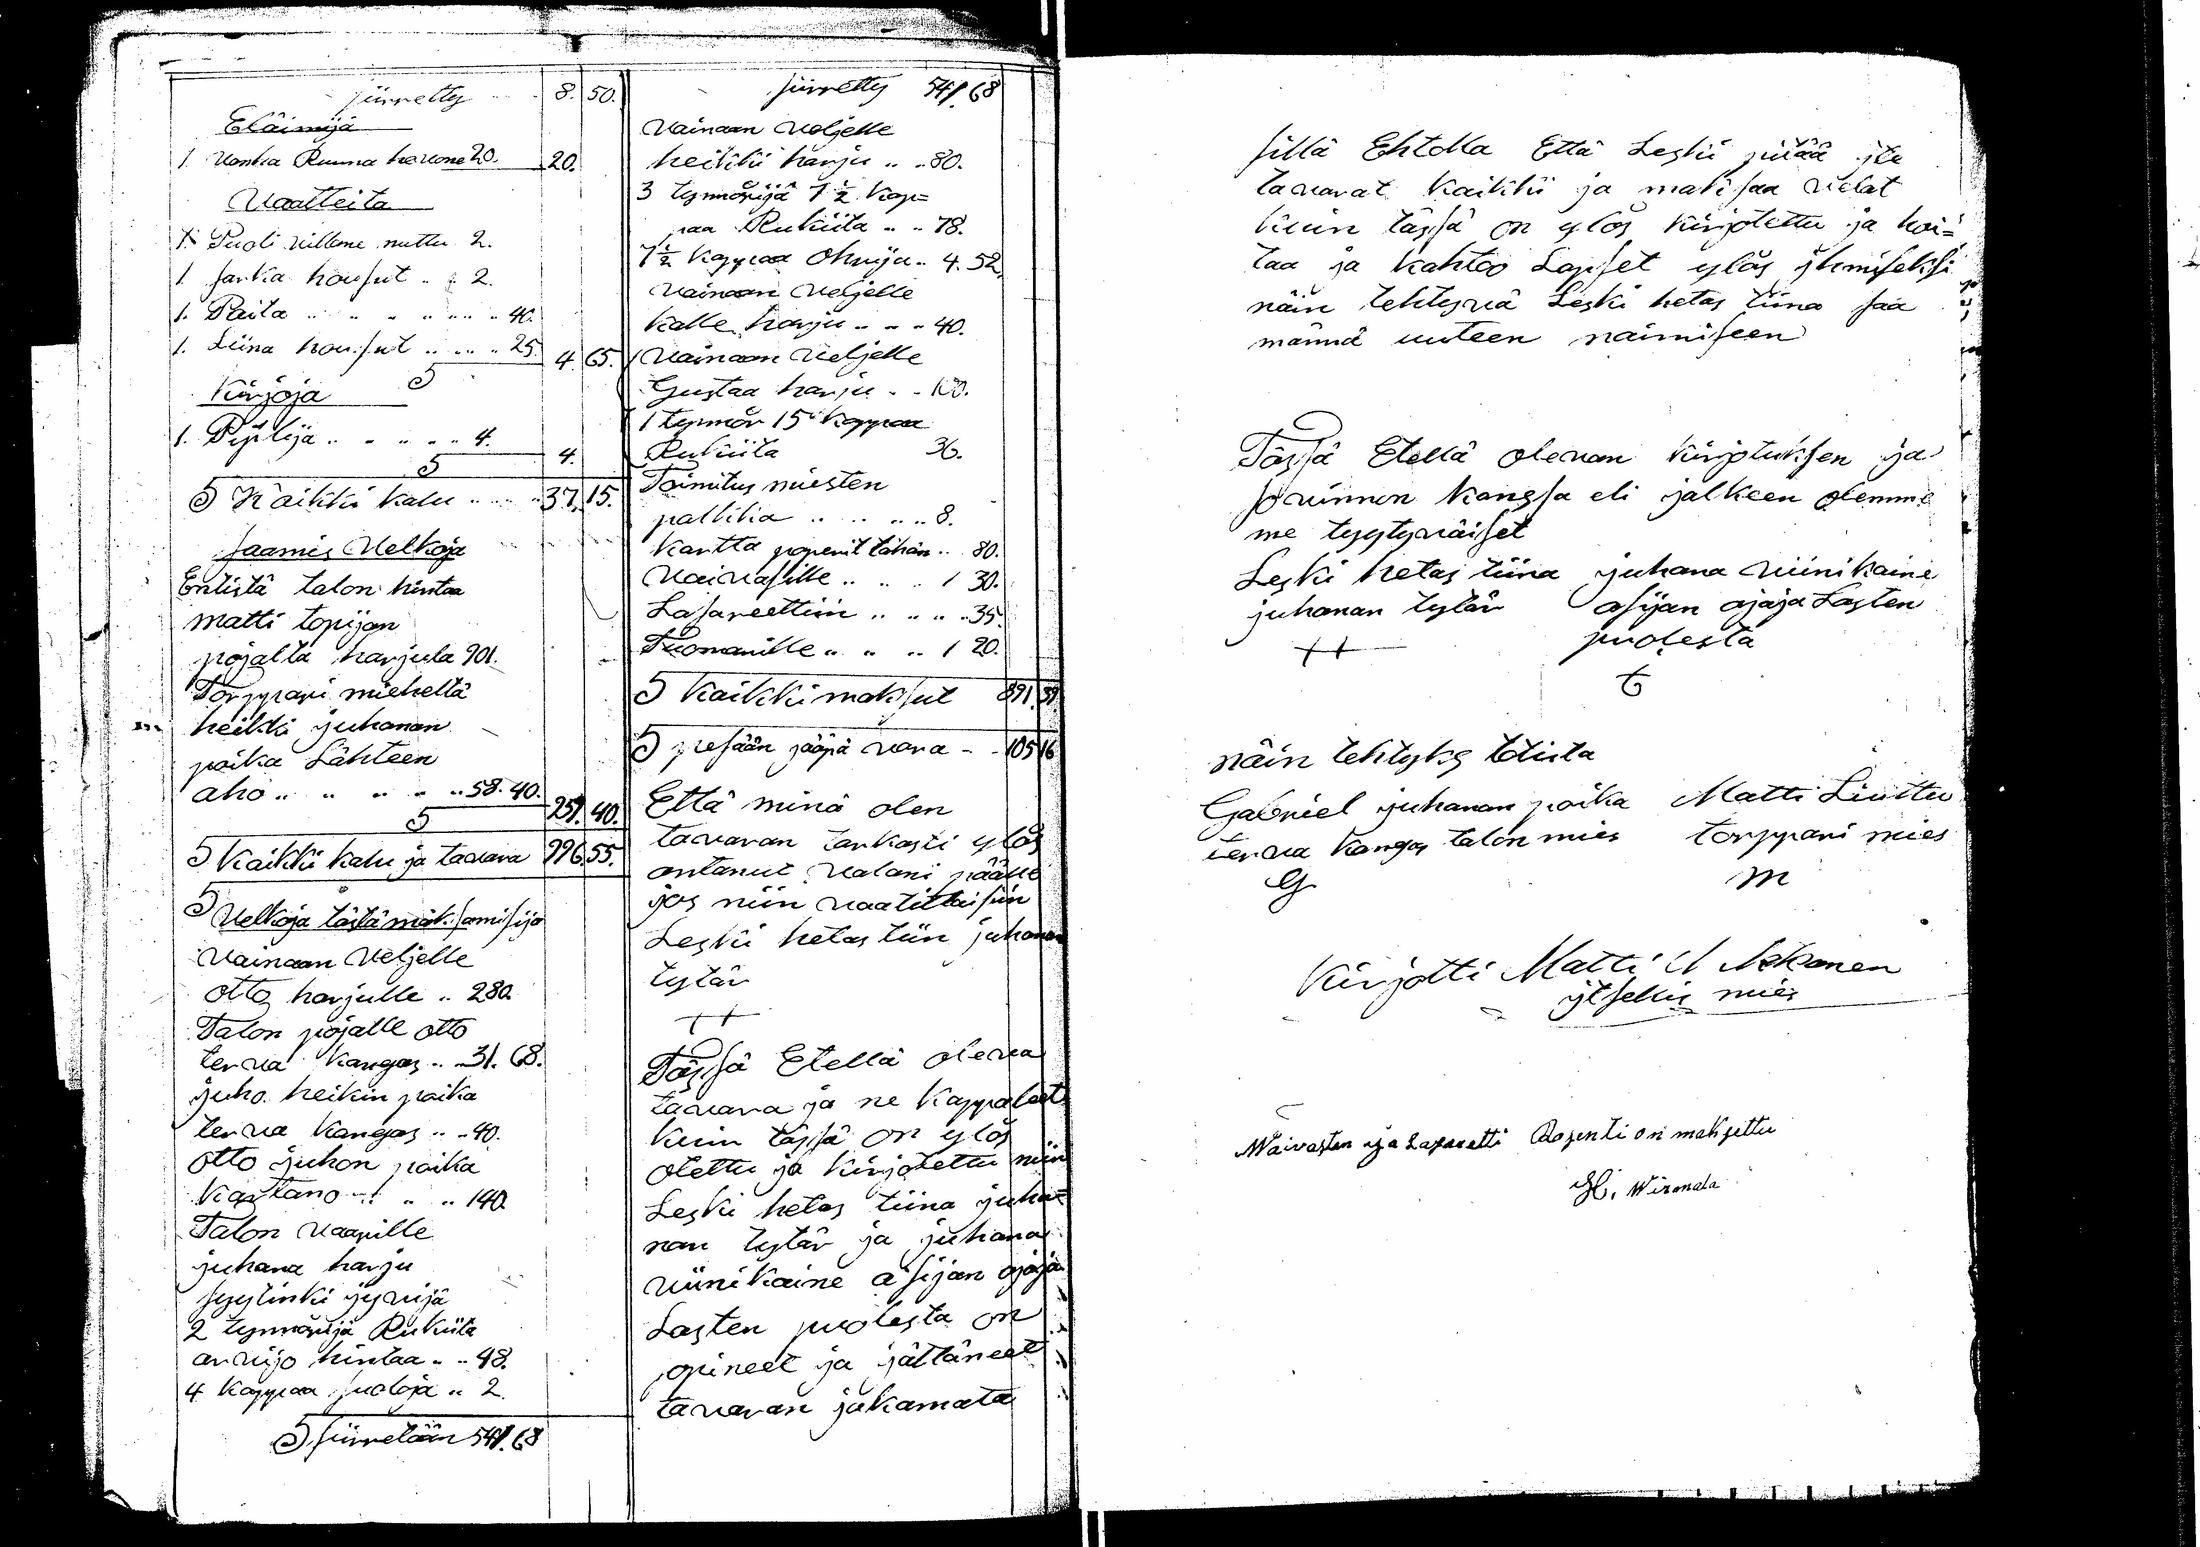 siirretty 8. 50.
Eläimijä
1. Vanha Ruuna hevone 20. 20.
Vaatteita
1. Puoli villane nuttu 2.
1 sarka housut 2.
1. Paita 40.
1. Liina housut 25. 4 65.
S
Kirjoja
1. Piplija 4.
S 4.
S Kaikki kalu 37. 15.
saamis Velkoja
Entistä talon hintaa
matti topijan
pojalta harjula 901.
Torppari mieheltä
heikki juhanan
poika Lähteen
aho 58. 40.
S 40.
S Kaikki kalu ja tavara 996 55.
S Velkoja tästä maksamisija
vainaan veljelle
otto harjulle 280.
Talon pojalle otto
terva kangas 31. 68.
juho heikin poika
terva kangas 40.
otto juhon poika
Kastano 140.
Talon vaarille
juhana harju
syytinki jyvijä
2 tynnörijä Rukiita
arvijo hintaa 48.
4 kappaa suoloja 2.
S siirretään 541. 68
siirretty 541. 68
vainaan veljelle
heikki harju 80.
3 tynnörijä 7 ½ kap=
paa Rukiita 78.
7 ½ kappaa ohrija 4. 52.
vainaan veljelle
kalle harju 40.
vainaan veljelle
Gustaa harju 100.
1 tynnör 15 kappaa
Rukiita 36.
Toimitus miesten
palkkia 8.
kartta paperit tähän 80.
Vaivasille 1 30.
Lasareettiin 35.
Tuomarille 1 20.
S kaikki maksut 891 39.
S pesään jääpä vara 105 16
Että minä olen
tavaran tarkasti ylös
antanut valani päälle
jos niin vaatittaisiin
Leski hetas tiin juhanan
tytär
++
Tässä Etellä oleva
tavara ja ne kappaleet
kuin tässä on ylös
otettu ja kirjotettu niin
Leski hetas tiina juha=
nan tytär ja juhana
viinikaine asijan ajaja
Lasten puolesta on
opineet ja jättäneet
tavaran jakamata
sillä Ehtolla Että Leski pitää
tavarat kaikki ja maksaa velat
kuin tässä on ylös kirjotettu ja hoi=
taa ja kahtoo Lapset ylös ihmiseksi
näin tehtyvä Leski hetas tiina saa
männä uuteen naimiseen
Tässä Etellä olevan kirjotuksen ja
sovinnon kanssa eli jälkeen olemme
me tyytyväiset
Leski hetas tiina juhana viinikaine
juhanan tytär asijan ajaja Lasten
++ puolesta
näin tehtyks totista
Gabriel juhanan poika Matti Liuttu
terva kangas talon mies torppari mies
G m
Kirjotti Matti
itsellis mies
Waivasten ja Lasaretti Rosenti on maksettu
H. Wirmala